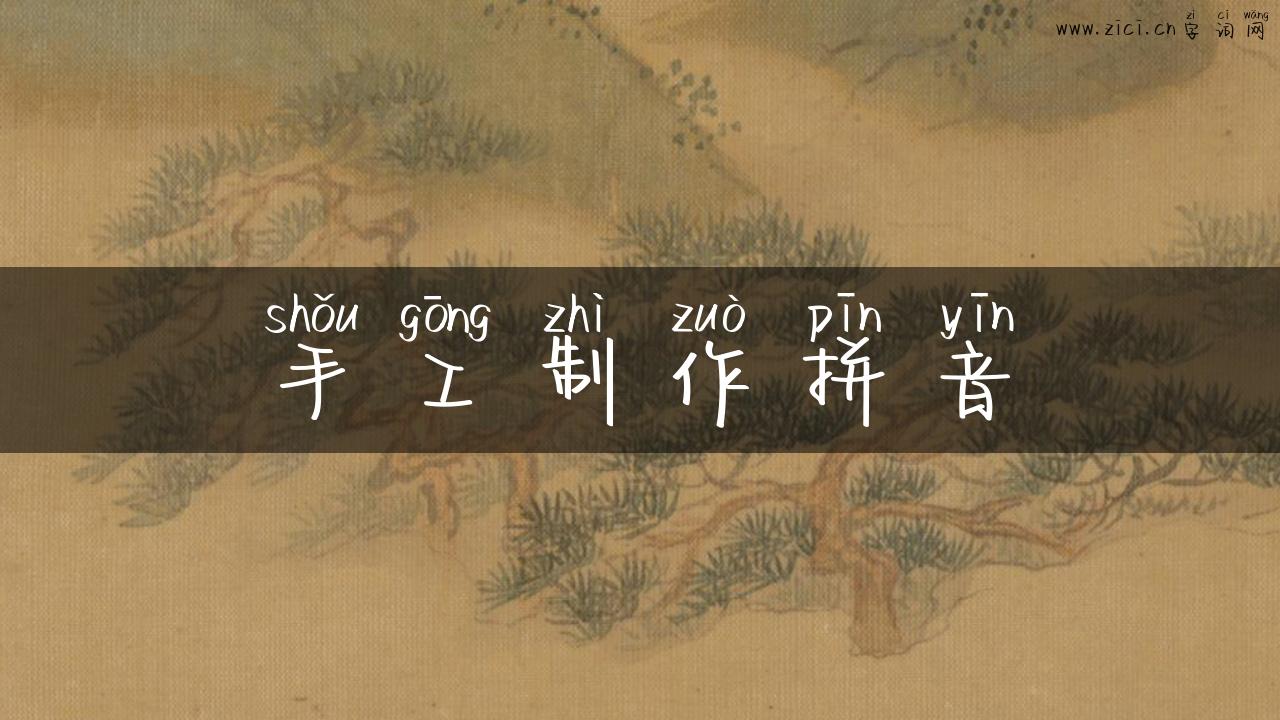 zì cí wǎng
www.zici.cn 字 词 网
shǒu gōng zhì zuò pīn yīn
手 工 制 作 拼 音